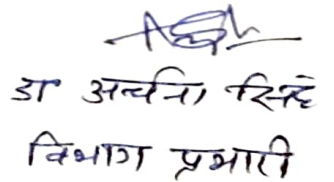 डा अर्चना सिंह
विभाग प्रभारी